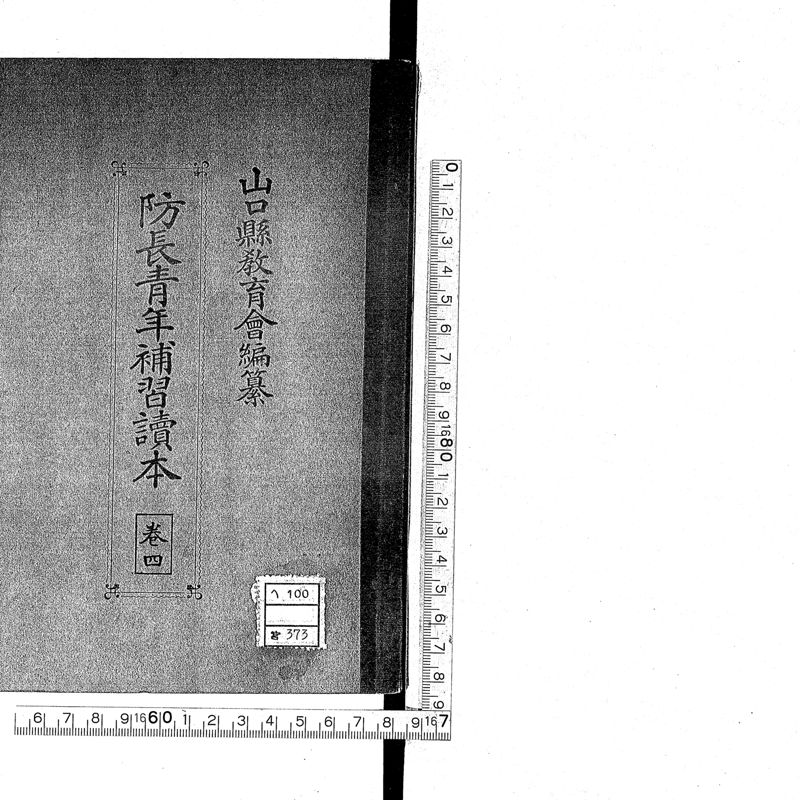 山口縣教育會編纂
防長青年補習讀本
卷四
へ 100
373
0 1 2 3 4 5 6 7 8 9 16 8 0 1 2 3 4 5 6 7 8 9
6 7 8 9 16 6 0 1 2 3 4 5 6 7 8 9 16 7